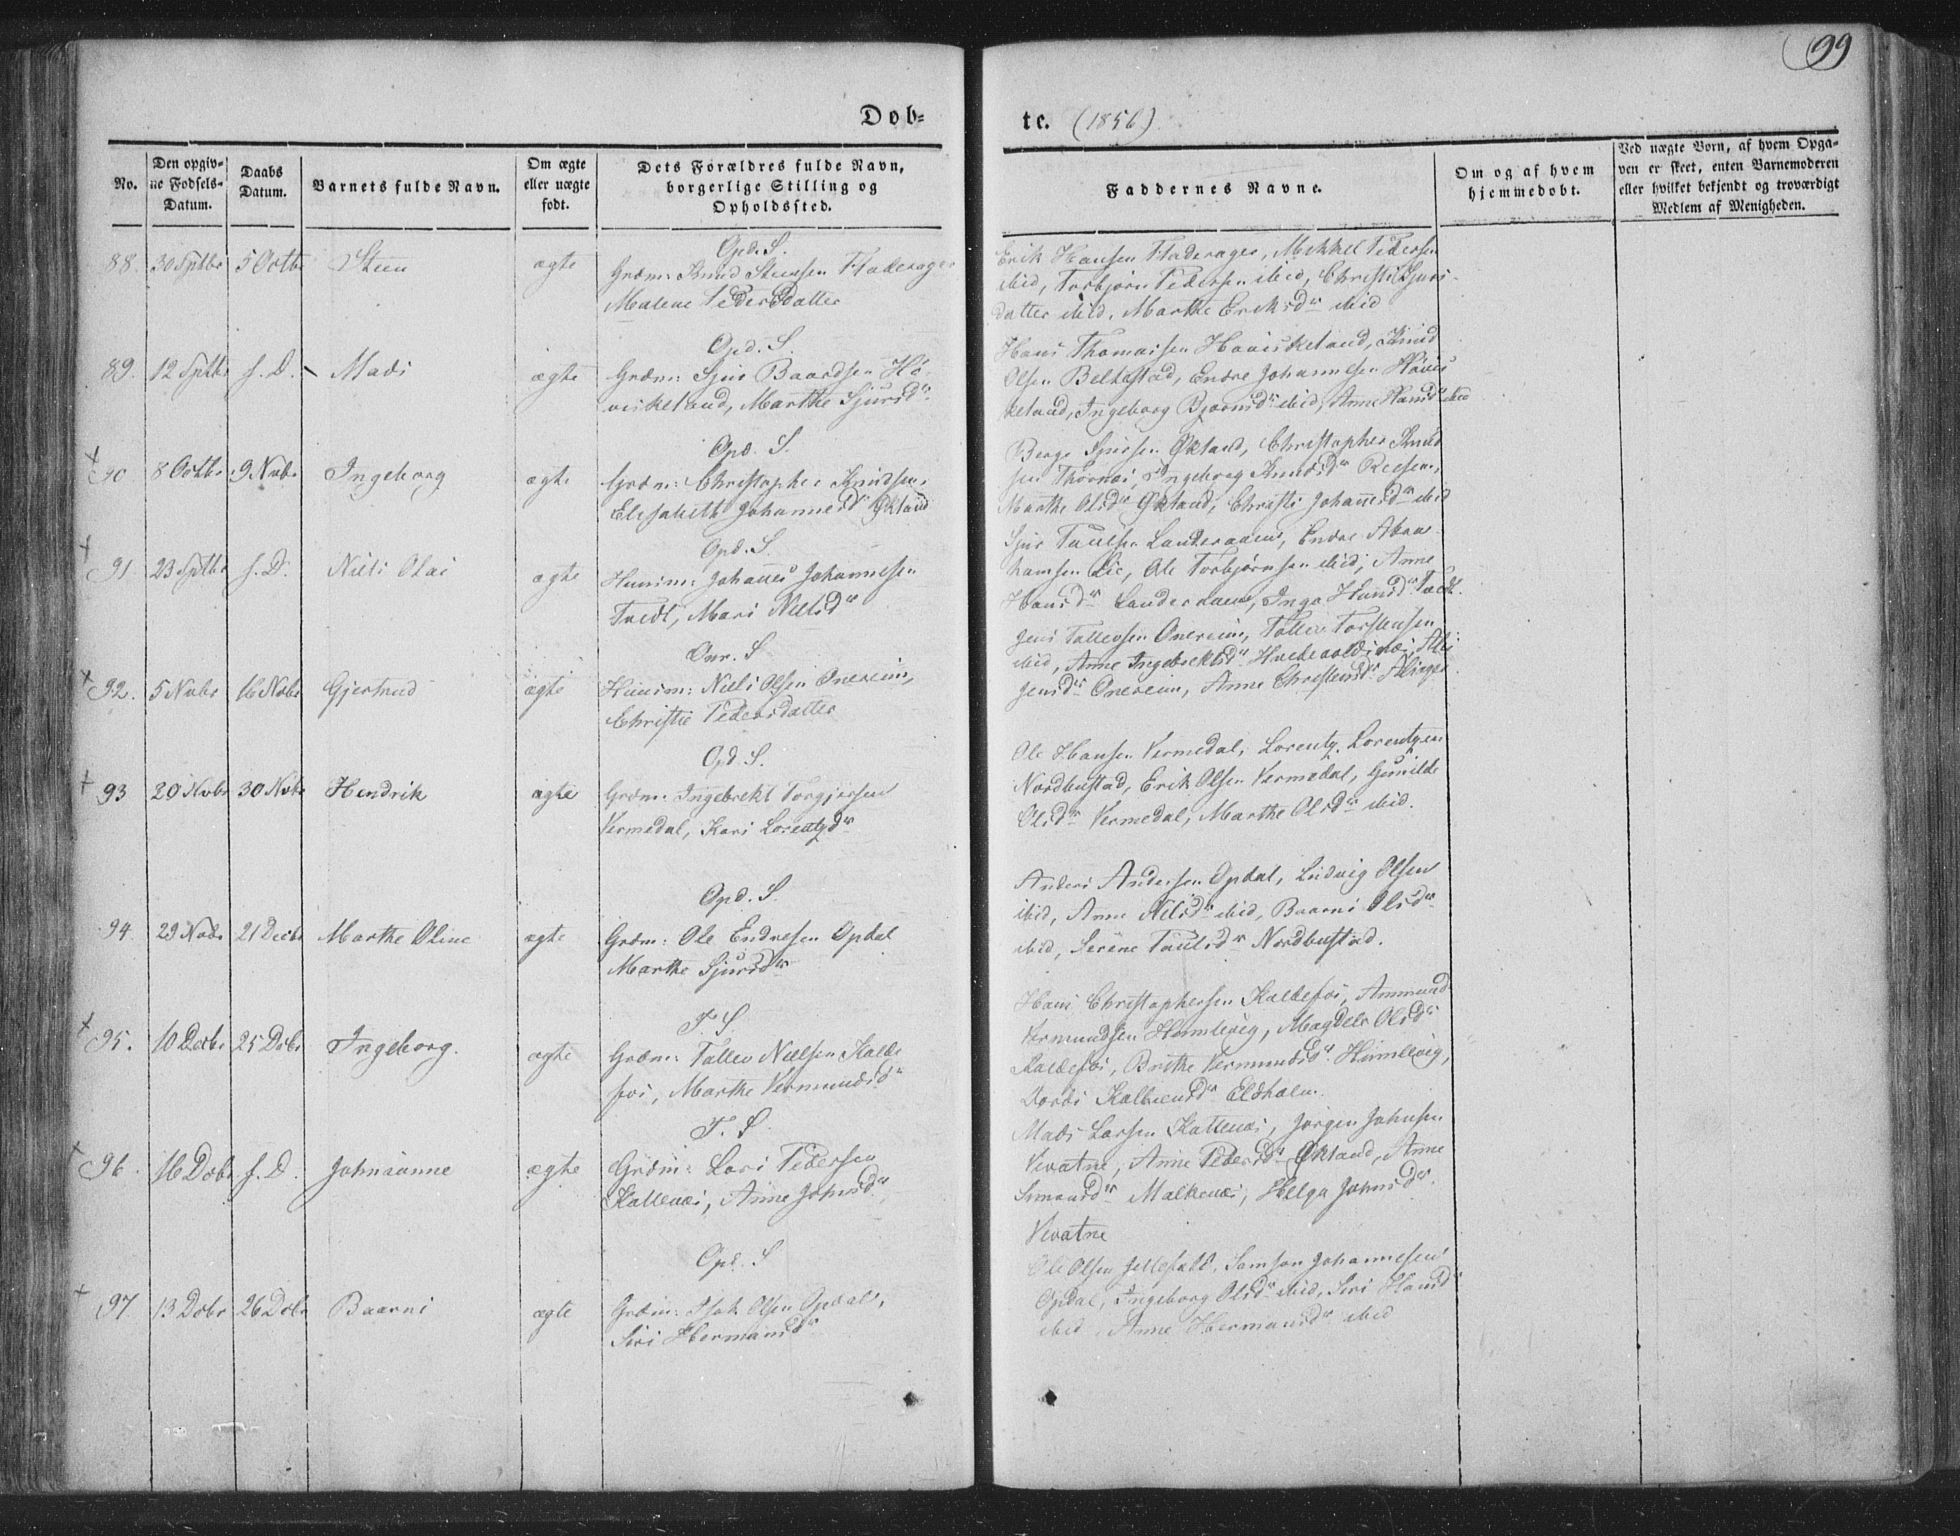 99
Døb-
te. (1856)
No.
Den opgiv-
ne Fødsels-
Datum.
Daabs
Datum.
Barnets fulde Navn.
Om ægte
eller uægte
født.
Dets Forældres fulde Navn,
borgerlige Stilling og
Opholdssted.
Faddernes Navne.
Om og af hvem
hjemmedøbt.
Ved uægte Børn, af hvem Opga-
ven er skeet, enten Barnemoderen
eller hvilket bekjendt og troværdigt
Medlem af Menigheden.
Opd. S.
88. 30 Sptbr 5 Octbr Steen ægte Grdm: Knud Steensen Fladerager
Malene Pedersdatter
Erik Hansen Fladerager, Mikkel Pedersen
ibid, Torbjørn Pedersen ibid, Christi Sjurs-
datter ibid, Marthe Eriksdr ibid
Opd. S.
89. 12 Sptbr f. D. Mads ægte Grdm: Sjur Baardsen Hø-
visketand, Marthe Sjursdr
Hans Thomassen Høvisketand, Knud
Olsen Beltestad, Endre Johannesen Høvis
ketand, Ingeborg Bjørnsdr ibid, Anne Hansdr ibid
Opd. S.
90 8 Octbr 9 Nvbr Ingeborg ægte Grdm: Christopher Knudsen,
Elisabeth Johannesdr Økland
Berge Sjursen Økland, Christopher Knud
sen Ingeborg Knudsdr
Marthe Olsdr Økland, Christi Johannesdr ibid
Opd. S.
91 23 Sptbr f. D. Niels Olai ægte Huusm: Johannes Johannesen
Tvedt, Mari Nielsdr
Sjur Paulsen Landeraaen, Endre Abra-
hamsen Lie, Ole Torbjørnsen ibid, Anne
Hansdr Landeraaen, Inga Hansdr Tvedt.
Onr. S
92. 5 Nvbr 16 Nvbr Gjertrud ægte Huusm: Niels Olsen Onereim,
Christie Pedersdatter
Jens Tollevsen Onereim, Tollev Torstensen
ibid, Anne Ingebrektsdr
Jensdr Onereim, Anne Christensdr
Opd. S.
93 20 Nvbr 30 Nvbr Hendrik ægte Grdm: Ingebrekt Torgjersen
Vermedal, Kari Lorentzdr
Ole Hansen Vermedal, Lorentz Lorentzen
Nordbustad, Erik Olsen Vermedal, Gunilde
Olsdr Vermedal, Marthe Olsdr ibid.
Opd. S.
94. 29 Nvbr 21 Decbr Marthe Oline ægte Grdm: Ole Endresen Opdal
Marthe Sjursdr
Anders Andersen Opdal, Ludvig Olsen
ibid, Anne Nilsdr ibid, Baarni Olsdr
ibid, Serene Paulsdr Nordbustad.
T. S.
95. 10 Decbr 25 Dcbr Ingeborg. ægte Grdm: Tollev Nielsen Kalde
fos, Marthe Vermundsdr
Hans Christophersen Kaldefos, Ammund
Vermundsen Humlevig, Magdele Olsdr
Kaldefos, Brithe Vermundsdr Humlevig,
Dordi Eldholm.
T. S.
96. 16 Dcbr f. D. Johnanne ægte Grdm: Lars Pedersen
Kattenes, Anne Johnsdr
Mads Larsen Kattenes, Jørgen Johnsen
Vevatne, Anne Pedersdr Økland, Anne
Simonsdr Malkenes, Helga Johnsdr
Vevatne
Opd. S
97. 13 Dcbr 26 Dcbr Baarni ægte Grdm: Isak Olsen Opdal,
Siri Hermansdr
Ole Olsen Samson Johannesen
Opdal, Ingeborg Olsdr ibid, Siri Hansdr
ibid, Anne Hermansdr ibid